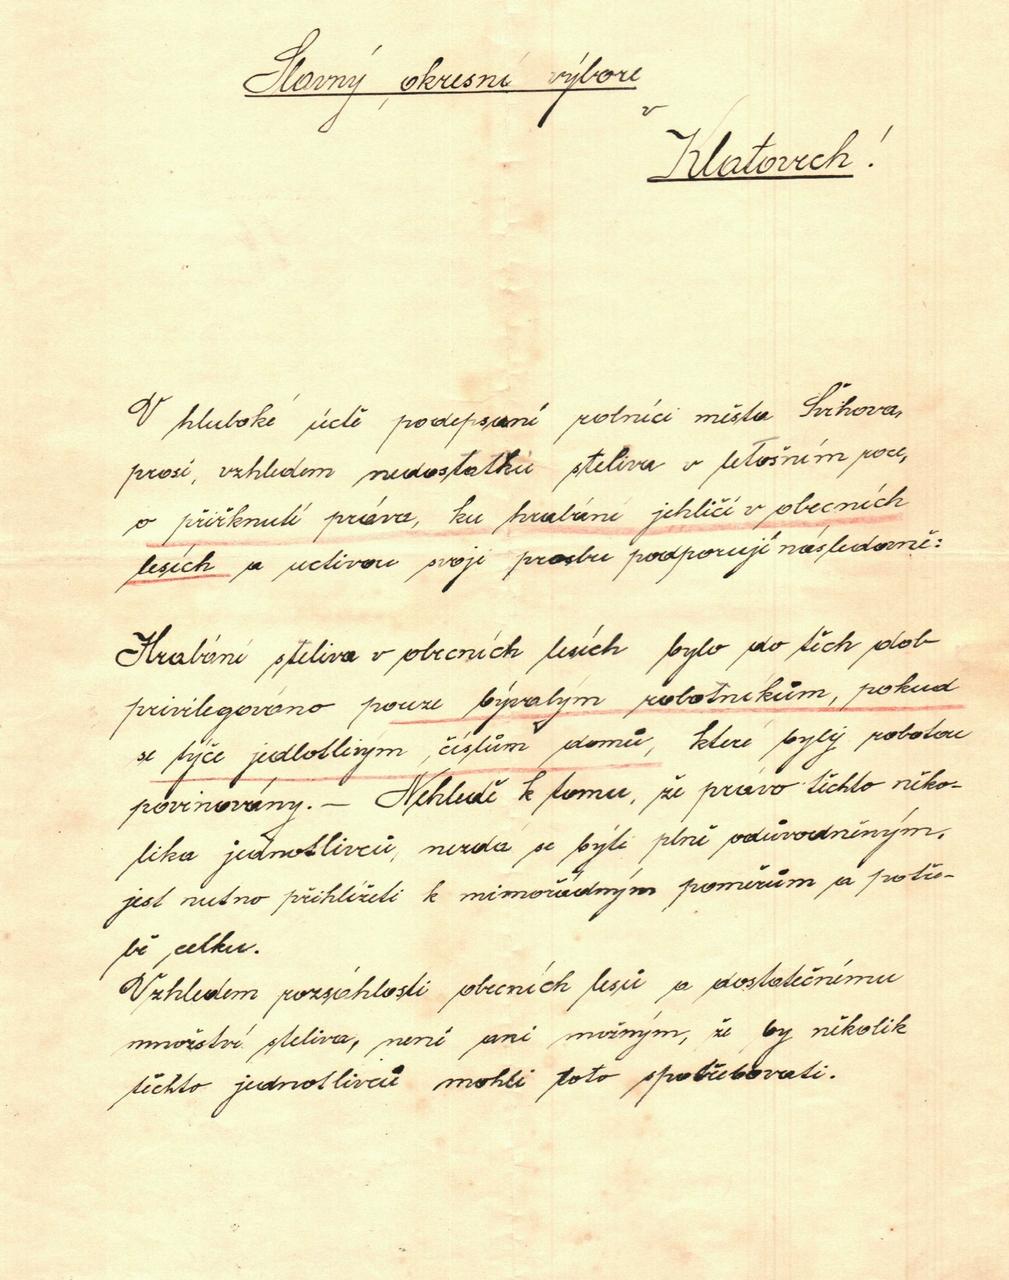 Slavný okresní výbore
v
Klatovech!
V hluboké úctě podepsaní rolníci města Švihova,
prosí, vzhledem nedostatku steliva v letošním roce,
o přiřknutí práva, ku hrabání jehličí v obecních
lesích a uctivou svoji prosbu podporují následovně:
Hrabání steliva v obecních lesích bylo do těch dob
privilegováno pouze bývalým robotníkům, pokud
se týče jedlotlivým číslům domů, které byly robotou
povinovány. — Nehledě k tomu, že právo těchto něko-
lika jednotlivců, nezdá se býti plně odůvodněným,
jest nutno přihlížeti k mimořádným poměrům a potře-
bě celku.
Vzhledem rozsáhlosti obecních lesů a dostatečnému
množství steliva, není ani možným, že by několik
těchto jednotlivců mohli toto spotřebovati.